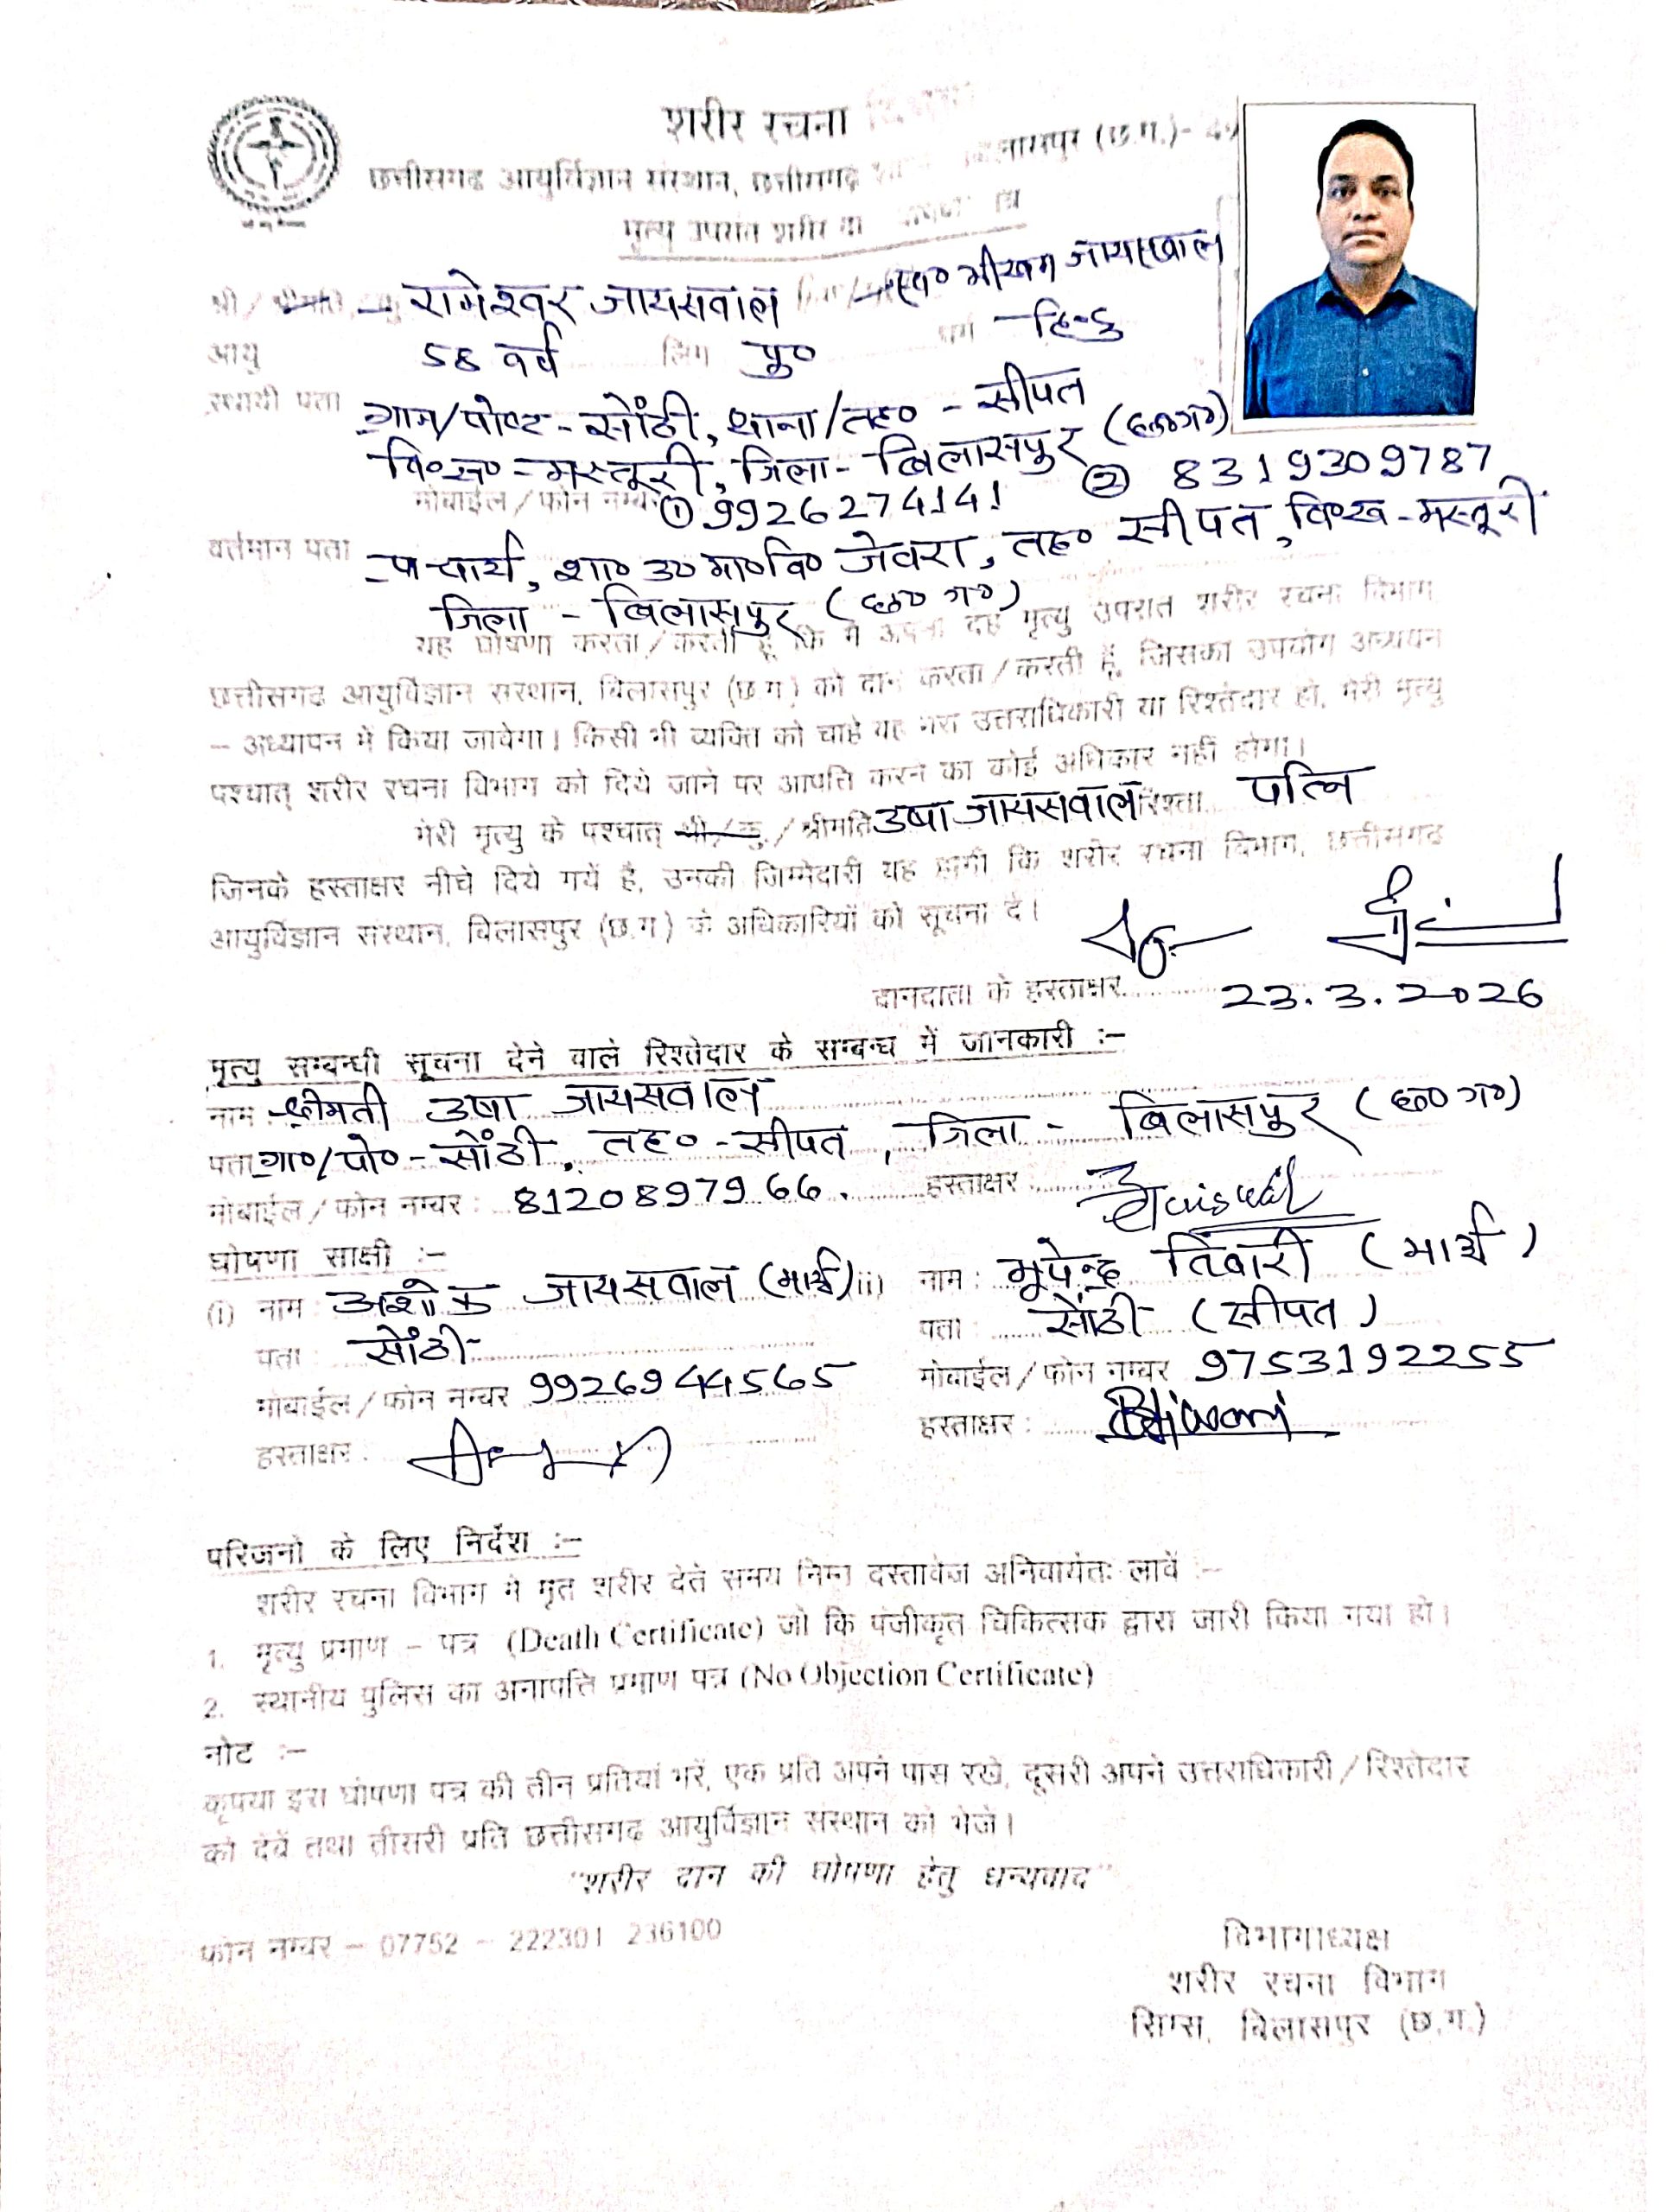 शरीर रचना
छत्तीसगढ आयुर्विज्ञान संस्थान, छत्तीसगढ़ बिलासपुर (छ.ग.)- 49
मृत्यु उपरांत शरीर दा
श्री / श्रीमति रामेश्वर जायसवाल स्व० भीखम जायसवाल
आयु 58 वर्ष लिंग पु० धर्म - हिन्दु
स्थायी पता ग्राम/पोष्ट - सोंठी, थाना/तह० - सीपत
वि०ख० - मस्तूरी, जिला - बिलासपुर (छ०ग०)
मोबाईल / फोन नम्बर ① 9926274141 ② 8319309787
वर्तमान पता प्राचार्य, शा० उ० मा० वि० जेवरा, तह० सीपत, वि०ख - मस्तूरी
जिला - बिलासपुर (छ० ग०)
यह घोषणा करता / करती हूँ कि मैं अपनी देह मृत्यु उपरांत शरीर रचना विभाग
छत्तीसगढ आयुर्विज्ञान संस्थान, बिलासपुर (छ.ग.) को दान करता / करती हूँ, जिसका उपयोग अध्ययन
– अध्यापन में किया जावेगा। किसी भी व्यक्ति को चाहे वह मेरा उत्तराधिकारी या रिश्तेदार हो, मेरी मृत्यु
पश्चात् शरीर रचना विभाग को दिये जाने पर आपत्ति करने का कोई अधिकार नहीं होगा।
मेरी मृत्यु के पश्चात् श्री / कु. / श्रीमति उषा जायसवाल रिश्ता पत्नि
जिनके हस्ताक्षर नीचे दिये गयें है, उनकी जिम्मेदारी यह होगी कि शरीर रचना विभाग, छत्तीसगढ
आयुर्विज्ञान संस्थान, बिलासपुर (छ.ग) के अधिकारियों को सूचना दे।
दानदाता के हस्ताक्षर
23.3.2026
मृत्यु सम्बन्धी सूचना देने वाले रिश्तेदार के सम्बन्ध में जानकारी :–
नाम - श्रीमती उषा जायसवाल
पता ग्रा०/पो० - सोंठी, तह० - सीपत, जिला - बिलासपुर (छ० ग०)
मोबाईल / फोन नम्बर : 8120897966. हस्ताक्षर : Jaiswal
घोषणा साक्षी :–
(i) नाम : अशोक जायसवाल (भाई) (ii) नाम : भूपेन्द्र तिवारी (भाई)
पता : सोंठी पता : सोंठी (सीपत)
मोबाईल / फोन नम्बर 9926944565 मोबाईल / फोन नम्बर 9753192255
हस्ताक्षर : हस्ताक्षर : Btiwari
परिजनो के लिए निर्देश :–
शरीर रचना विभाग मे मृत शरीर देते समय निम्न दस्तावेज अनिवार्यतः लावें :–
1. मृत्यु प्रमाण – पत्र (Death Certificate) जो कि पंजीकृत चिकित्सक द्वारा जारी किया गया हो।
2. स्थानीय पुलिस का अनापत्ति प्रमाण पत्र (No Objection Certificate)
नोट :–
कृपया इस घोषणा पत्र की तीन प्रतियां भरें, एक प्रति अपने पास रखे, दूसरी अपने उत्तराधिकारी / रिश्तेदार
को देवें तथा तीसरी प्रति छत्तीसगढ आयुर्विज्ञान संस्थान को भेजे।
"शरीर दान की घोषणा हेतु धन्यवाद"
फोन नम्बर – 07752 – 222301 236100
विभागाध्यक्ष
शरीर रचना विभाग
सिम्स, बिलासपुर (छ.ग.)